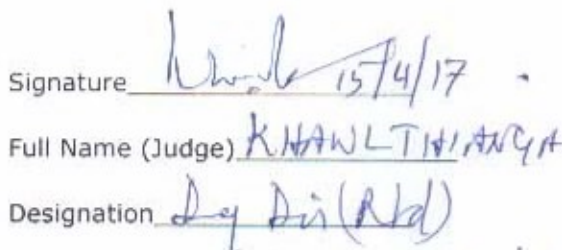 Signature 15/4/17
Full Name (Judge) KHAWLTHIANGA
Designation Dy Dir (Rtd)